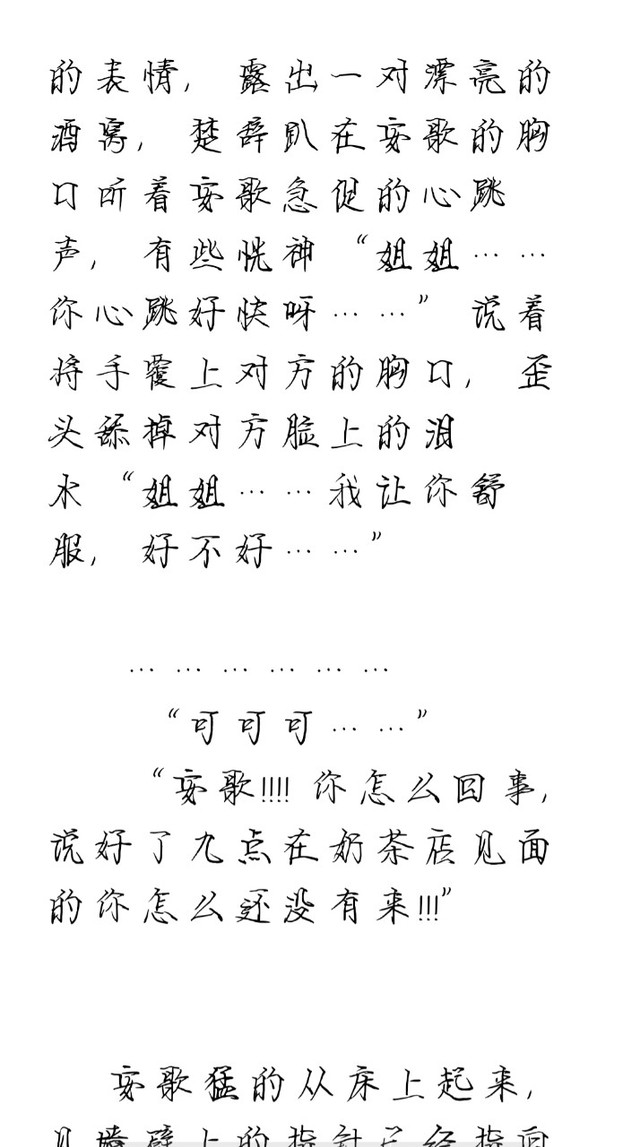 的表情，露出一对漂亮的
酒窝，楚辞趴在安歌的胸
口听着安歌急促的心跳
声，有些恍神“姐姐……
你心跳好快呀……”说着
将手覆上对方的胸口，歪
头舔掉对方脸上的泪
水“姐姐……我让你舒
服，好不好……”
………………
“可可可……”
“安歌!!!!你怎么回事,
说好了九点在奶茶店见面
的你怎么还没有来!!!”
安歌猛的从床上起来,
见墙壁上的指针已经指向